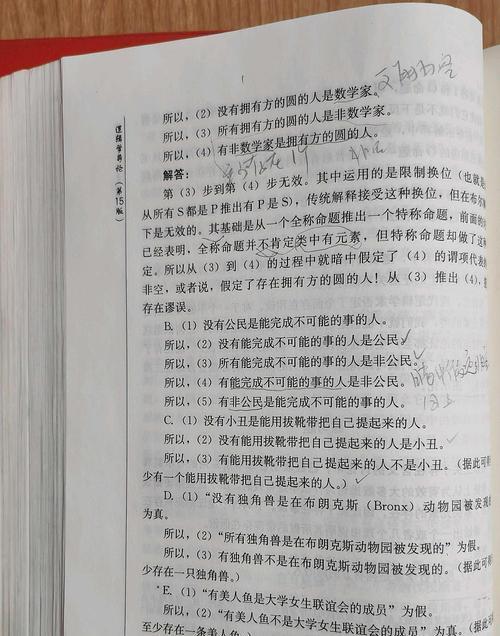 所以，(2) 没有拥有方的圆的人是数学家。
所以，(3) 所有拥有方的圆的人是非数学家。
所以，(4) 有非数学家是拥有方的圆的人。
解答：
第 (3) 步到第 (4) 步无效。其中运用的是限制换位（也就是
从所有 S 都是 P 推出有 P 是 S），传统解释接受这种换位，但在布尔
下是无效的。其基础是从一个全称命题推出一个特称命题，前面的
已经表明，全称命题并不肯定类中有元素，但特称命题却做了这种
定。所以从 (3) 到 (4) 的过程中就暗中假定了 (4) 的谓项代表的
非空，或者说，假定了存在拥有方的圆的人！从 (3) 推出 (4)，
存在谬误。
B. (1) 没有公民是能完成不可能的事的人。
所以，(2) 没有能完成不可能的事的人是公民。
所以，(3) 所有能完成不可能的事的人是非公民。
所以，(4) 有能完成不可能的事的人是非公民。
所以，(5) 有非公民是能完成不可能的事的人。
C. (1) 没有小丑是能用拔靴带把自己提起来的人。
所以，(2) 没有能用拔靴带把自己提起来的人是小丑。
所以，(3) 有能用拔靴带把自己提起来的人不是小丑。（据此可
少有一个能用拔靴带把自己提起来的人。）
D. (1) “没有独角兽是在布朗克斯（Bronx）动物园被发现
为真。
所以，(2) “所有独角兽是在布朗克斯动物园被发现的” 为假。
所以，(3) 有独角兽不是在布朗克斯动物园被发现的。（据此可
少存在一只独角兽。）
*E. (1) “有美人鱼是大学女生联谊会的成员” 为假。
所以，(2) “有美人鱼不是大学女生联谊会的成员” 为真。
至少存在一条美人鱼
逻辑学导论（第15版）